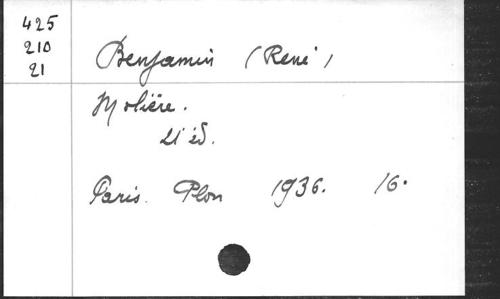 425
210
21
Benjamin (René)
Molière.
21 éd.
Paris. Plon 1936. 16°